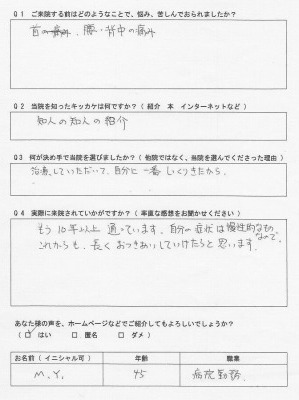 Q1 ご来院する前はどのようなことで、悩み、苦しんでおられましたか？
首の痛み、腰、背中の痛み
Q2 当院を知ったキッカケは何ですか？（ 紹介 本 インターネットなど ）
知人の知人の紹介
Q3 何が決め手で当院を選びましたか？（ 他院ではなく、当院を選んでくださった理由 ）
治療していただいて、自分に一番しっくりきたから。
Q4 実際に来院されていかがですか？（ 率直な感想をお聞かせください ）
もう10年以上通っています。自分の症状は慢性的なもなので、
これからも、長くおつきあいしていけたらと思います。
あなた様の声を、ホームページなどでご紹介してもよろしいでしょうか？
（ ☑ はい □ 匿名 □ ダメ ）
お名前（ イニシャル可 ） 年齢 職業
M.Y. 45 病院勤務